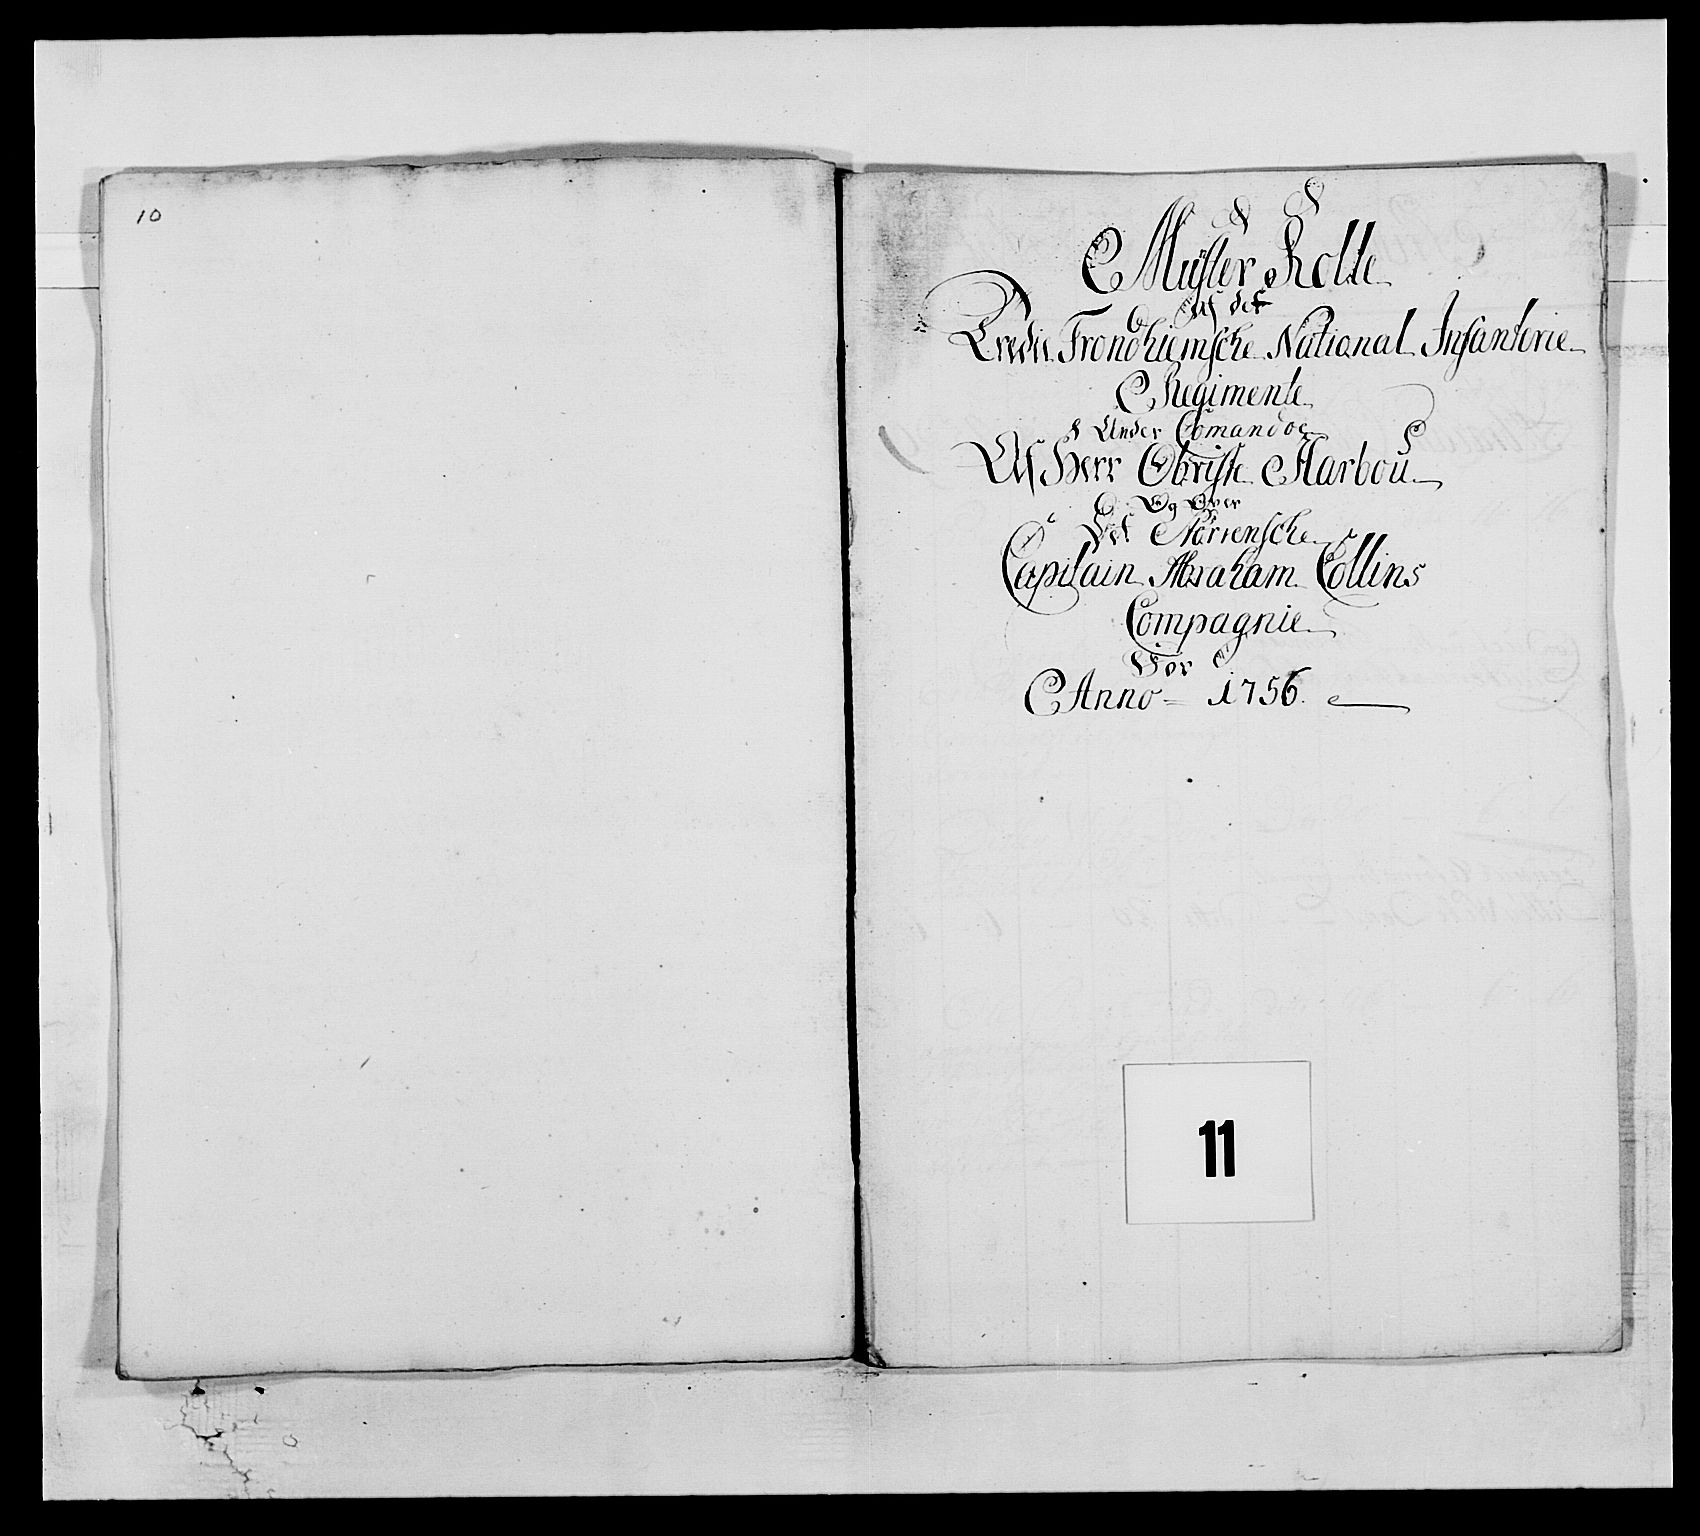 10
Muster Rolle
af det
Tredie Trondhiemsche National Infanterie
Regimente
Under Comandoe
Af Herr Obriste Harboú
Og Over
Det Nörrensche
Capitain Abraham Collins
Compagnie
Vor
Anno 1756.
11